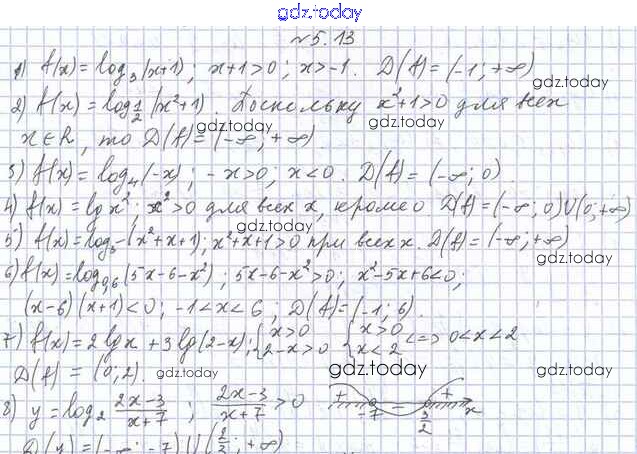 gdz.today
№5.13
1) f(x) = log₃(x+1); x+1>0; x>-1. D(f) = (-1; +∞)
gdz.today
2) f(x) = log_{1/2}(x²+1). Поскольку x²+1>0 для всех
gdz.today
x∈R, то D(f) = (-∞; +∞)
gdz.today
3) f(x) = log₄(-x); -x>0; x<0. D(f) = (-∞; 0)
gdz.today
4) f(x) = lg x²; x²>0 для всех x, кроме 0 D(f) = (-∞; 0)U(0; +∞)
gdz.today
5) f(x) = log₃ (x²+x+1); x²+x+1>0 при всех x. D(f) = (-∞; +∞)
gdz.today
6) f(x) = log₀,₆(5x-6-x²); 5x-6-x²>0; x²-5x+6<0;
(x-6)(x+1)<0; -1<x<6; D(f) = (-1; 6).
gdz.today
7) f(x) = 2 lg x + 3 lg(2-x); { x>0 { x>0 <=> 0<x<2
2-x>0 x<2
gdz.today
D(f) = (0; 2).
gdz.today
8) y = log₂ (2x-3)/(x+7); (2x-3)/(x+7) > 0 + -7 - 3/2 + x
gdz.today
D(y) = (-∞; -7)U(3/2; +∞)